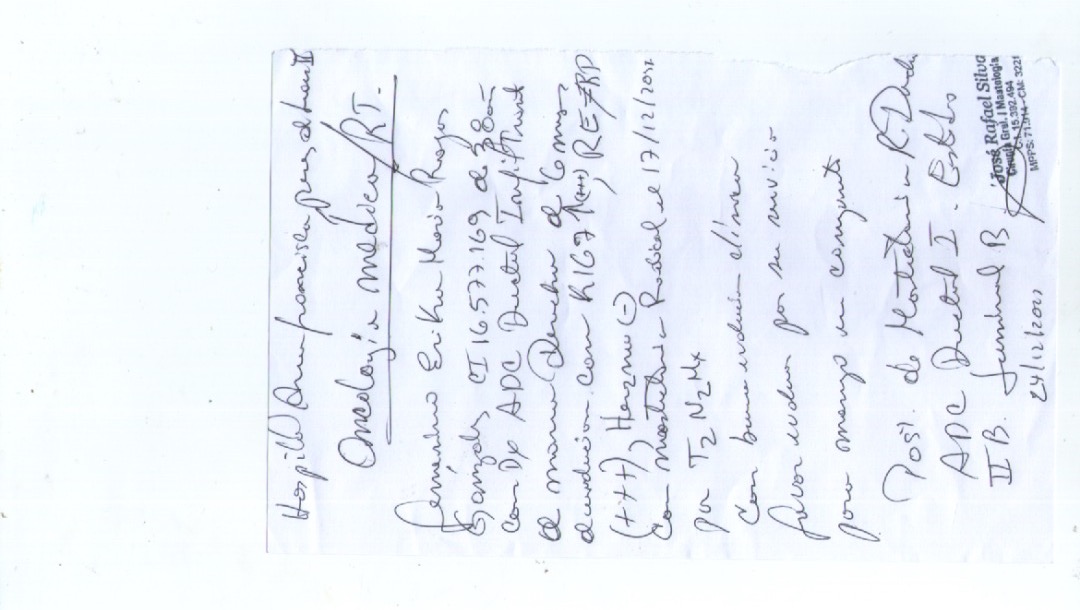 Hospital Ana Francisca Perez de Leon II
Oncología medico/RT.
Femenino Erika María Rojas
González CI 16.577.169 de 38 años
con Dx ADC Ductal Infiltrante
de mama Derecha de 6 meses
evolución con KI67 ↑(+++), RE ≠ RP
(+++), Her2neu (-)
Con mastectomía Radical el 17/12/202
por T2N2Mx
con buena evolución clínica
favor evaluar por su servicio
para manejo en conjunto
Post. de Mastectomía R. Derecha
ADC Ductal I. Estadio
II B. Luminal B
24/12/202
José Rafael Silva
Cirugía Gral. / Mastología
C.I. 15.392.494
MPPS: 71.314 - CM: 3221